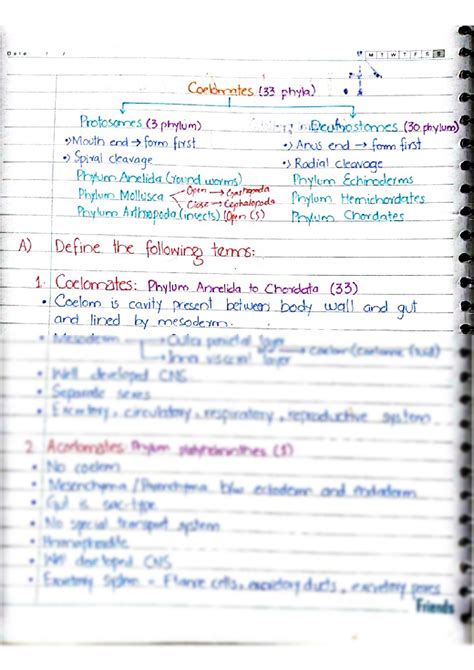 Date / /
M T W T F S S
Coelomates (33 phyla)
Protosomes (3 phylum) Deutrostomes (30 phylum)
•) Mouth end → form first •) Anus end → form first
•) Spiral cleavage •) Radial cleavage
Phylum Anelida (round worms) Phylum Echinoderms
Phylum Mollusca Open → Gastropoda Close → Cephalopoda Phylum Hemichordates
Phylum Arthopoda (insects) (Open (S) Phylum Chordates
A) Define the following terms:
1. Coelomates: Phylum Annelida to Chordata (33)
• Coelom is cavity present between body wall and gut
and lined by mesoderm.
• Mesoderm → Outer parietal layer
→ Inner visceral layer → coelom (coelomic fluid)
• Well developed CNS
• Separate sexes
• Excretory, circulatory, respiratory, reproductive system
2. Acoelomates: Phylum platyhelminthes (1)
• No coelom
• Mesenchyma / Parenchyma b/w ectoderm and endoderm
• Gut is sac-type
• No special transport system
• Hermaphrodite
• Well developed CNS
• Excretory System = Flame cells, excretory ducts, excretory pores
Friends